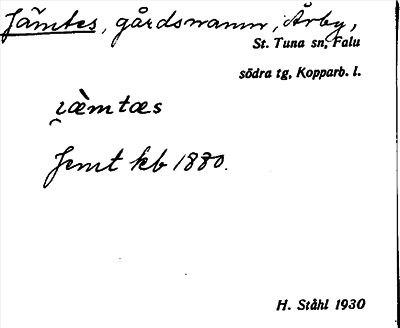 Jämtes, gårdsnamn, Årby,
St. Tuna sn, Falu
södra tg, Kopparb. l.
i̯æ̀mtæs
Jemt kb 1880.
H. Ståhl 1930